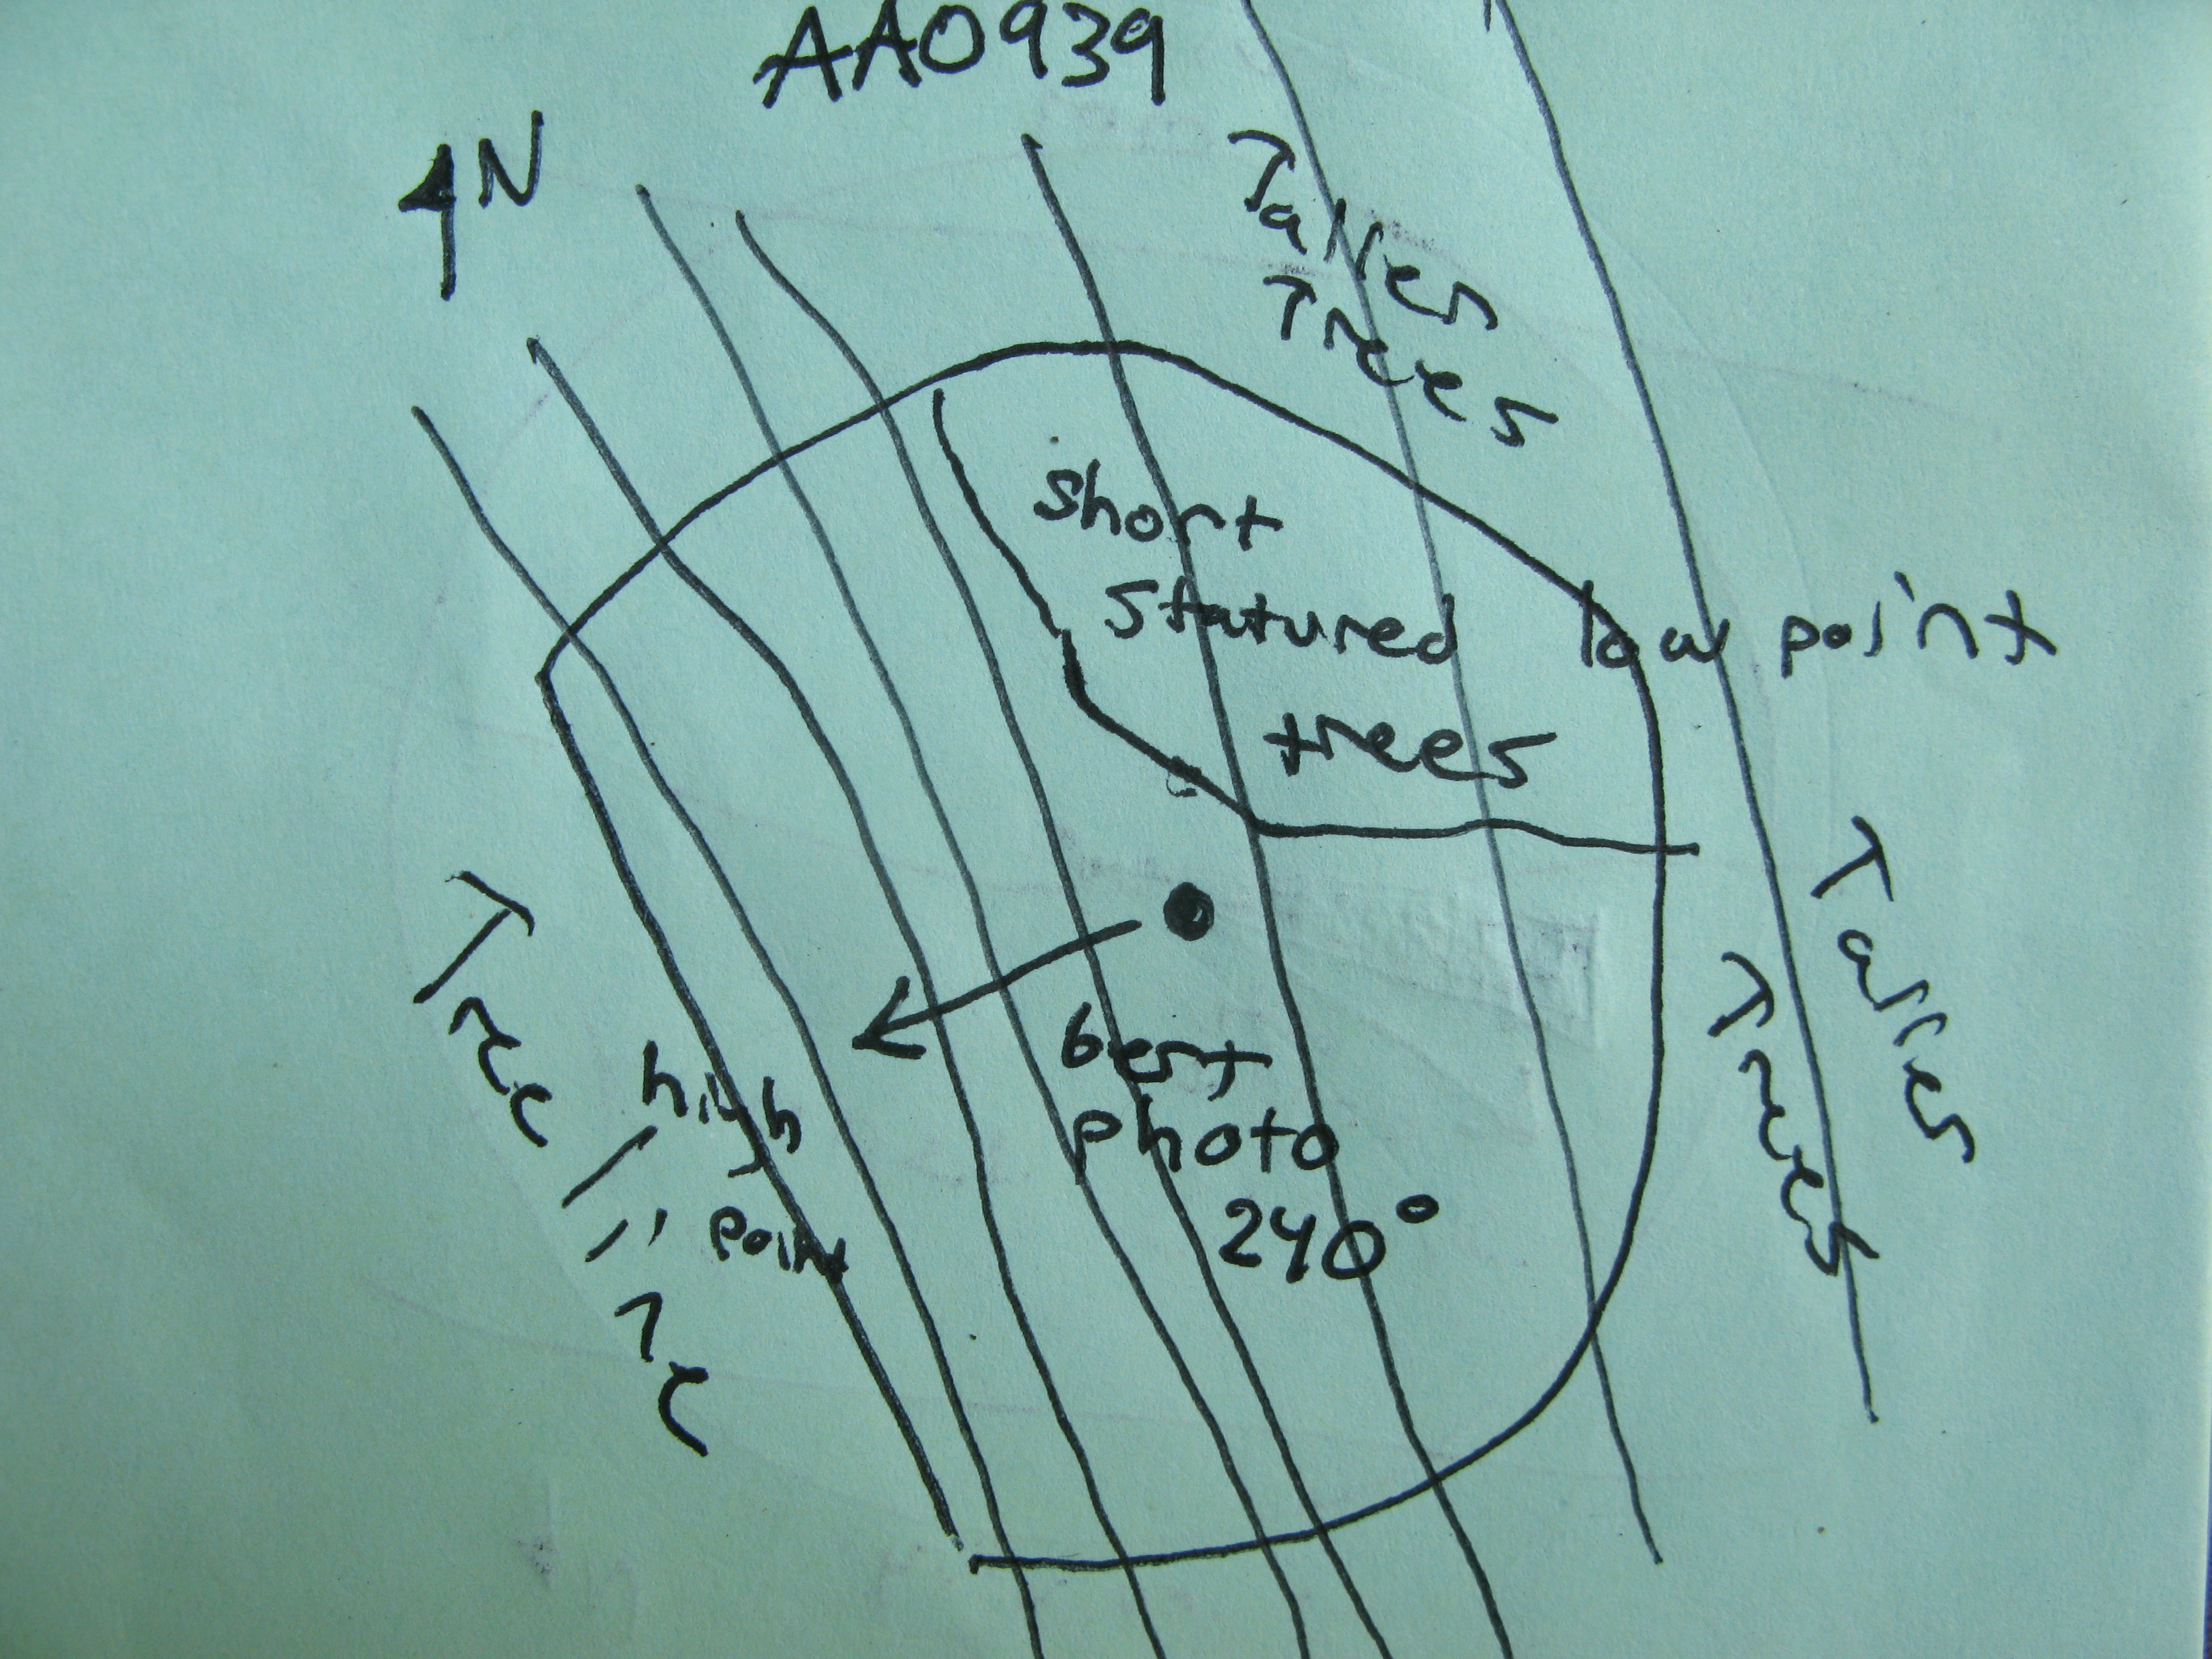 AA0939
N
Taller
Trees
Short
Statured
trees
low point
Taller
Trees
Tree
line
high
point
best
photo
240°